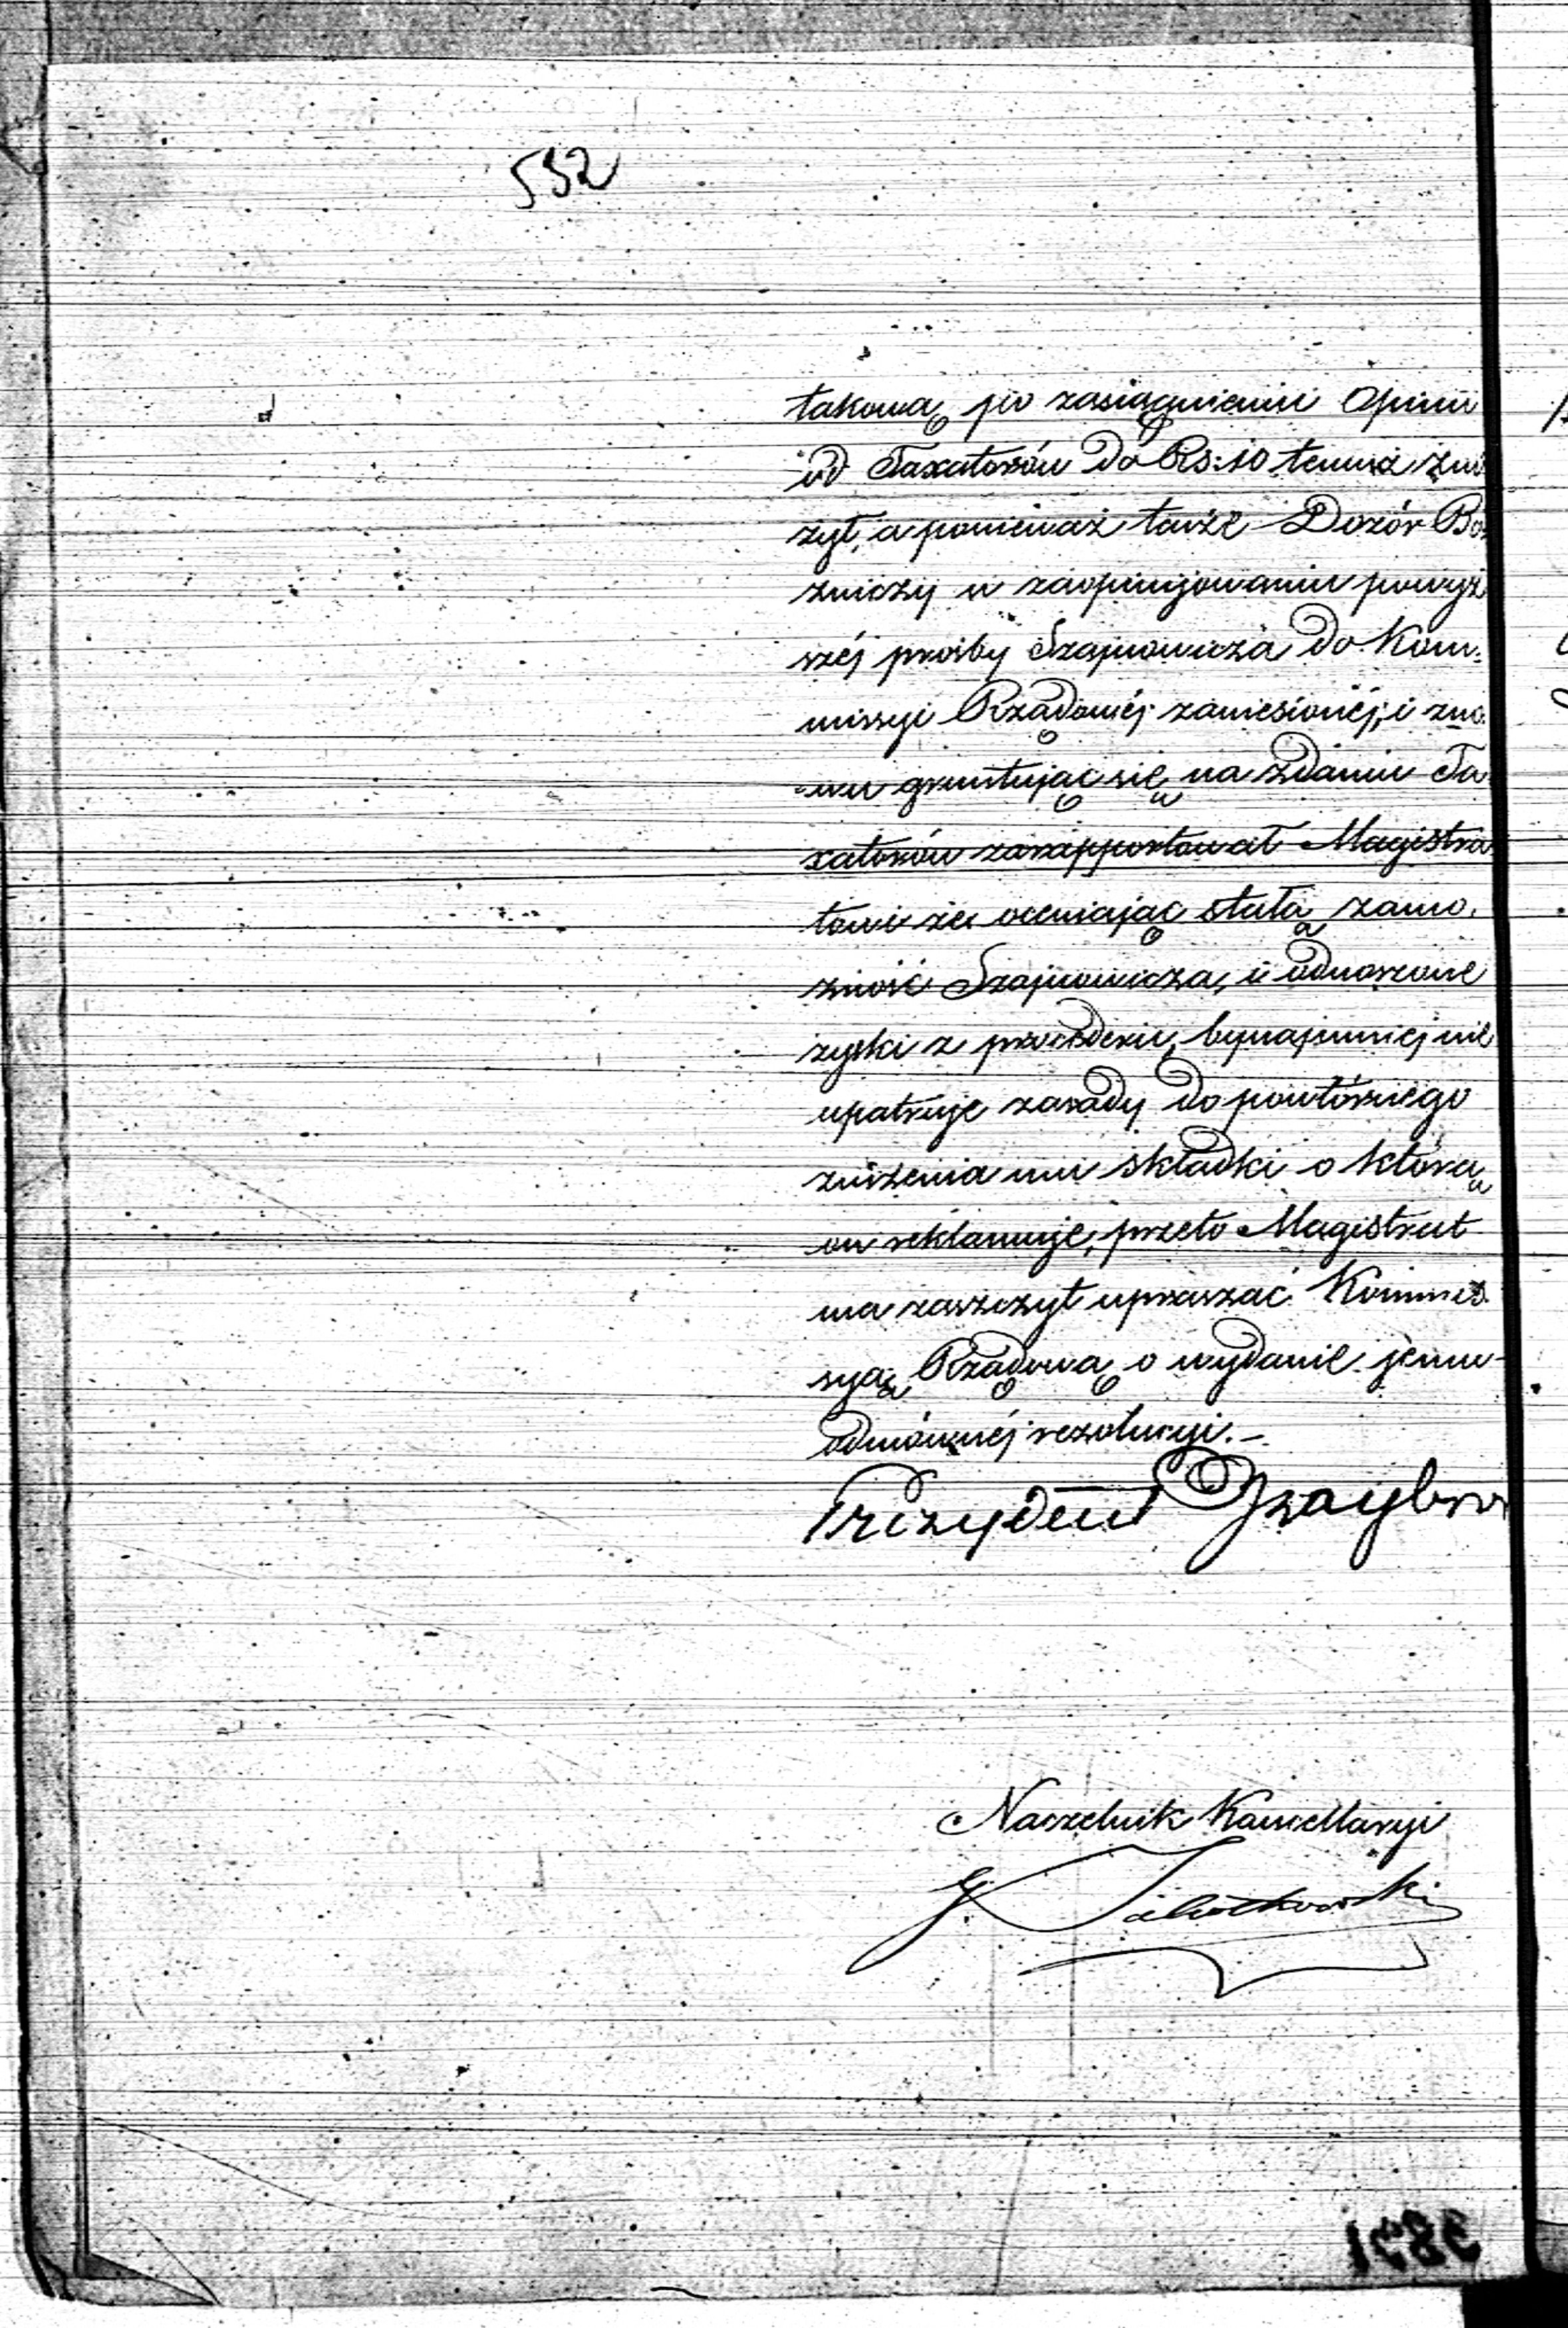 532
takową po zasiągnieniu Opinii
od Taxatorów do Rs: 10 temuż zni
żył, a ponieważ tenże Dozór Bo
zniczy w zaopinijowaniu powyż
széj prośby Szajnowicza do Kom:
missyi Rządowéj zaniesionéj, i zno
wu gruntując się na zdaniu Ta
xatorów zarapportował Magistra
towi że oceniając stałą zamo.
żność Szajnowicza, i odnoszone
zyski z procederu, bynajmniej nie
upatruje zasady do powtórnego
zniżenia mu składki o którą
on reklamuje, przeto Magistrat
ma zaszczyt upraszać Kommis
syą Rządową o wydanie jemu
odmównéj rezolucyi. –
Prezydent
Naczelnik Kancellaryi